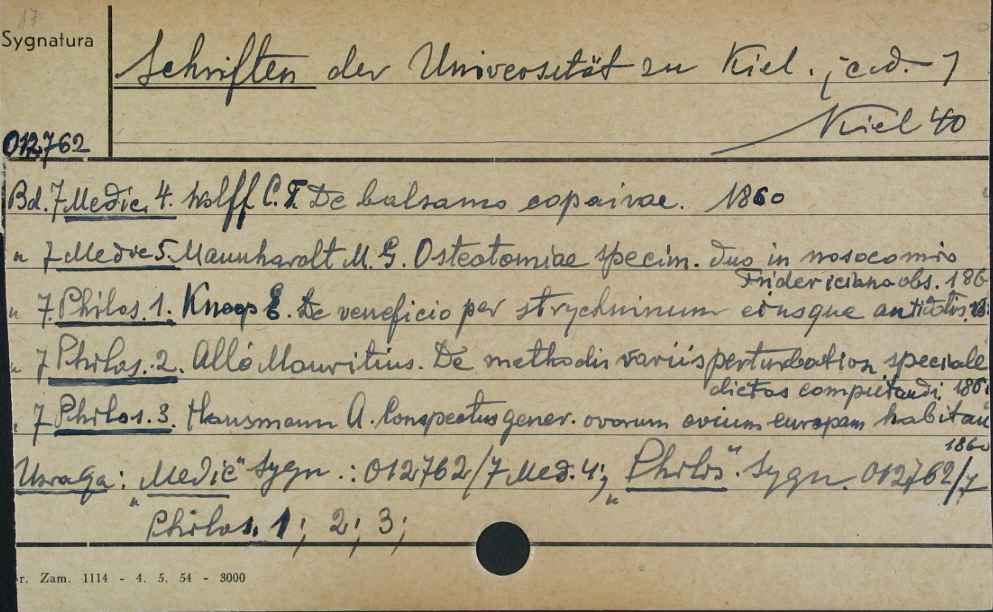 17
Sygnatura
Schriften der Universität zu Kiel. /c.d. 7
Kiel 40
012762
Bd. 7 Medic. 4. Wolff C. F. De balsamo copaivae. 1860
" 7 Medic 5. Mannhardt M. G. Osteotomiae specim. duo in nosocomio
Fridericiano obs. 186
" 7. Philos. 1. Knoop E. De veneficio per strychninum eiusque antidotis. 18
" 7 Philos. 2. Allé Mauritius. De methodis variis perturbation speciale
dictas computandi. 186
" 7 Philos. 3. Hansmann A. Conspectus gener. ovorum avium europam habitan
1860
Uwaga: "Medic" Sygn.: 012762/7 Med. 4; "Philos". Sygn. 012762/7
Philos. 1; 2; 3;
r. Zam. 1114 - 4. 5. 54 - 3000